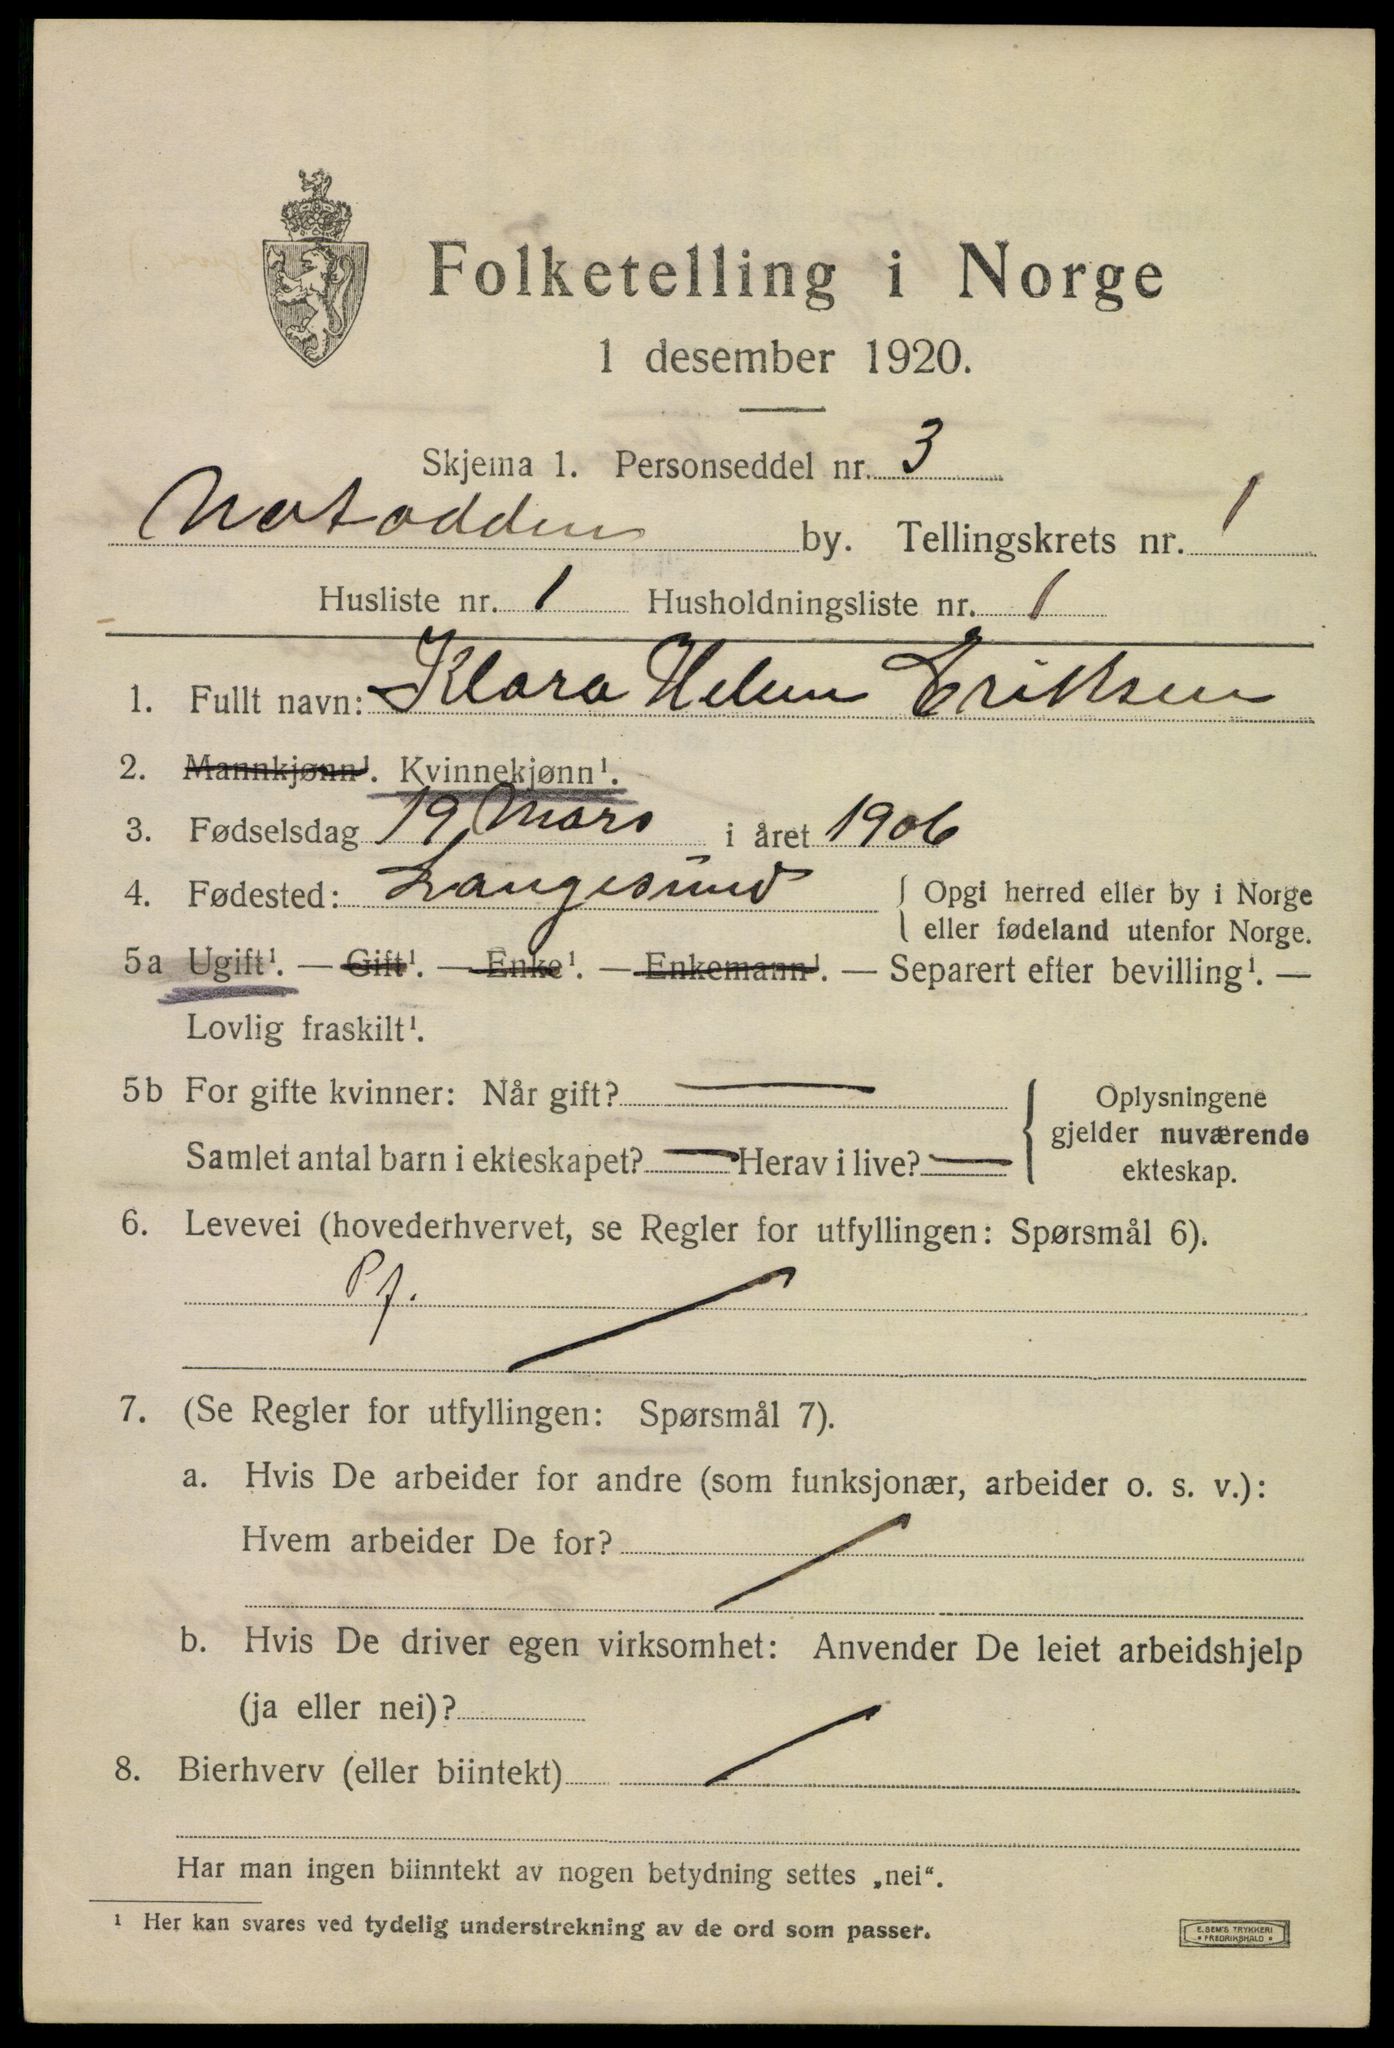 Folketelling i Norge
1 desember 1920.
Skjema 1. Personseddel nr. 3
Notodden by. Tellingskrets nr. 1
Husliste nr. 1 Husholdningsliste nr. 1
1. Fullt navn: Klara Helene Eriksen
2. Mannkjønn¹. Kvinnekjønn¹.
3. Fødselsdag 19 Mars i året 1906
4. Fødested: Langesund { Opgi herred eller by i Norge
eller fødeland utenfor Norge.
5a Ugift¹. — Gift¹. — Enke¹. — Enkemann¹. — Separert efter bevilling¹. —
Lovlig fraskilt¹.
5b For gifte kvinner: Når gift? —
Samlet antal barn i ekteskapet? — Herav i live? —
{ Oplysningene
gjelder nuværende
ekteskap.
6. Levevei (hovederhvervet, se Regler for utfyllingen: Spørsmål 6).
Pf.
7. (Se Regler for utfyllingen: Spørsmål 7).
a. Hvis De arbeider for andre (som funksjonær, arbeider o. s. v.):
Hvem arbeider De for?
b. Hvis De driver egen virksomhet: Anvender De leiet arbeidshjelp
(ja eller nei)?
8. Bierhverv (eller biintekt)
Har man ingen biinntekt av nogen betydning settes „nei“.
¹ Her kan svares ved tydelig understrekning av de ord som passer.
E. SEM'S TRYKKERI
• FREDRIKSHALD •